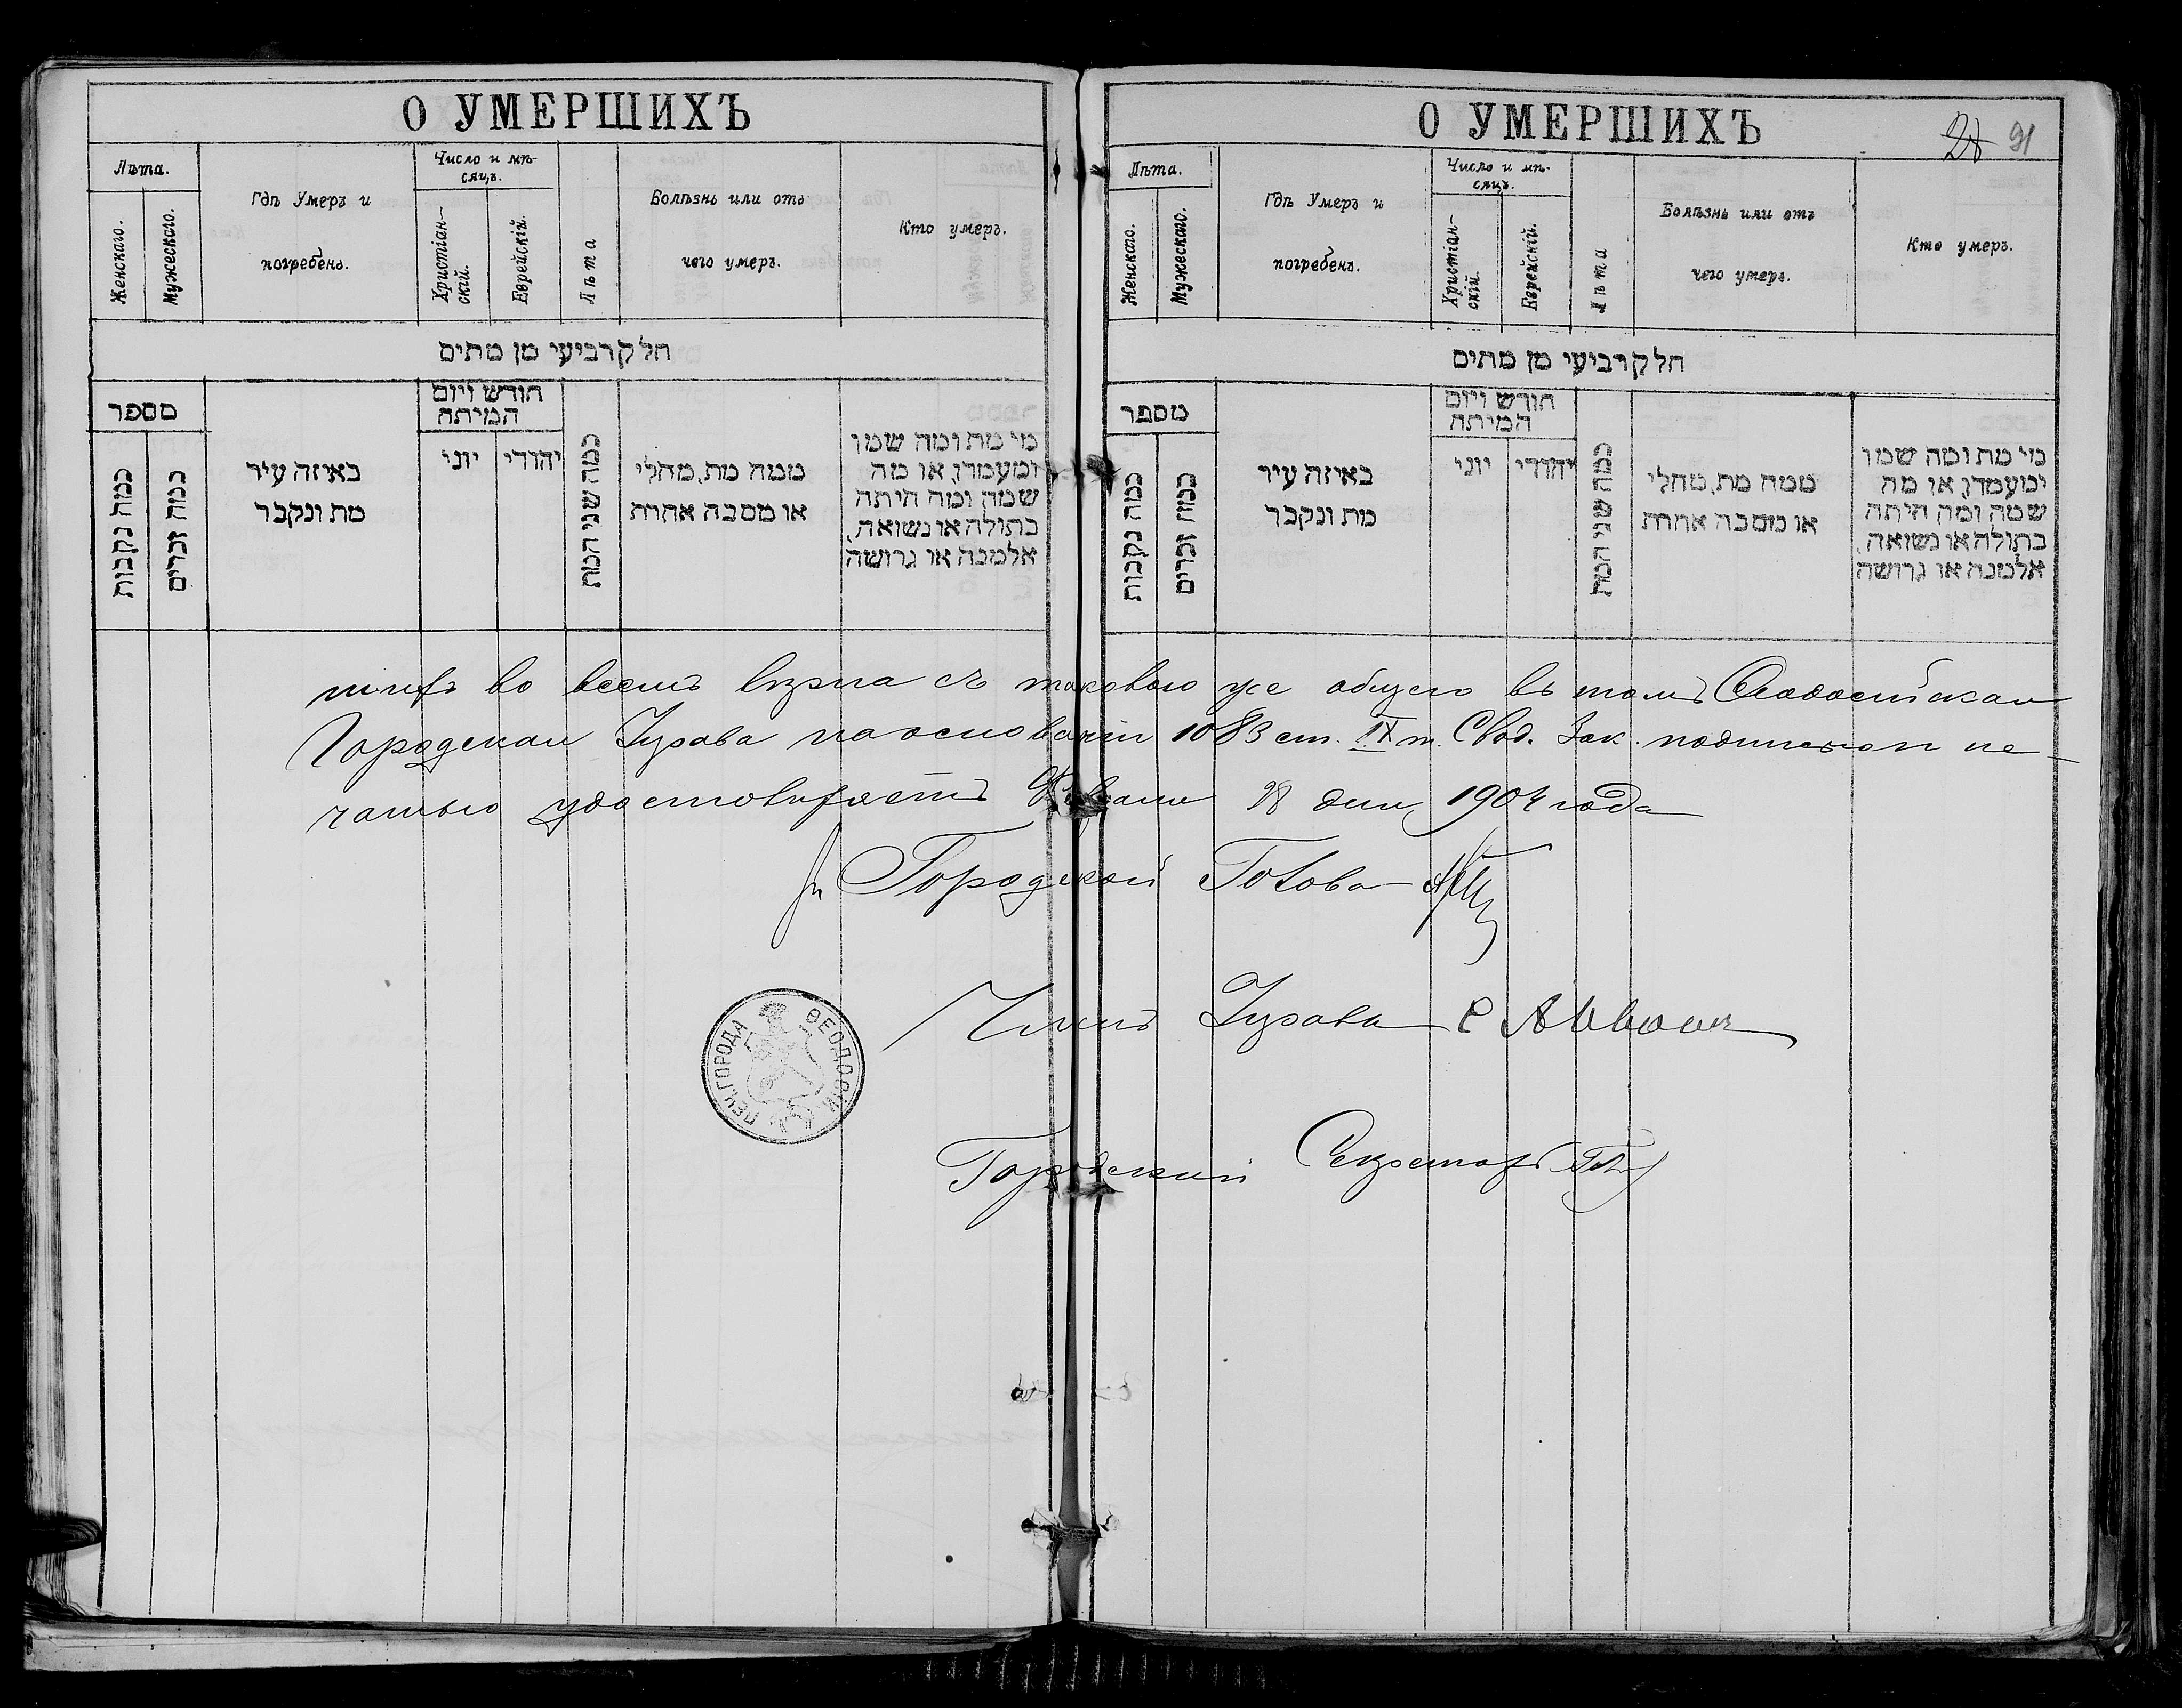 О УМЕРШИХЪ
Лѣта.
Женскаго.
Мужескаго.
Гдѣ Умеръ и
погребенъ.
Число и мѣ-
сяцъ.
Христіан-
скій.
Еврейскій.
Лѣта
Болѣзнь или отъ
чего умеръ.
Кто умеръ.
חלק רביעי מן מתים
מספר
כמה נקבות
כמה זכרים
באיזה עיר
מת ונקבר
חודש ויום
המיתה
יוני
יהודי
כמה שני המת
ממה מת, מחלי
או מסבה אחרת
מי מת ומה שמו
ומעמדו, או מה
שמה ומה היתה
בתולה או נשואה,
אלמנה או גרושה
О УМЕРШИХЪ
28 91
Лѣта.
Женскаго.
Мужескаго.
Гдѣ Умеръ и
погребенъ.
Число и мѣ-
сяцъ.
Христіан-
скій.
Еврейскій.
Лѣта
Болѣзнь или отъ
чего умеръ.
Кто умеръ.
חלק רביעי מן מתים
מספר
כמה נקבות
כמה זכרים
באיזה עיר
מת ונקבר
חודש ויום
המיתה
יוני
יהודי
כמה שני המת
ממה מת, מחלי
או מסבה אחרת
מי מת ומה שמו
ומעמדו, או מה
שמה ומה היתה
בתולה או נשואה,
אלמנה או גרושה
во всемъ вѣрна съ таковою же общею въ томъ Ѳеодосійская
Городская Управа на основаніи 1083 ст. IX т. Свод. Зак. подписью и пе-
чатью удостовѣряетъ Февраля 28 дня 1904 года
Городской Голова
Членъ Управы
Городской Секретарь
ПЕЧ. ГОРОДА ѲЕОДОСІИ